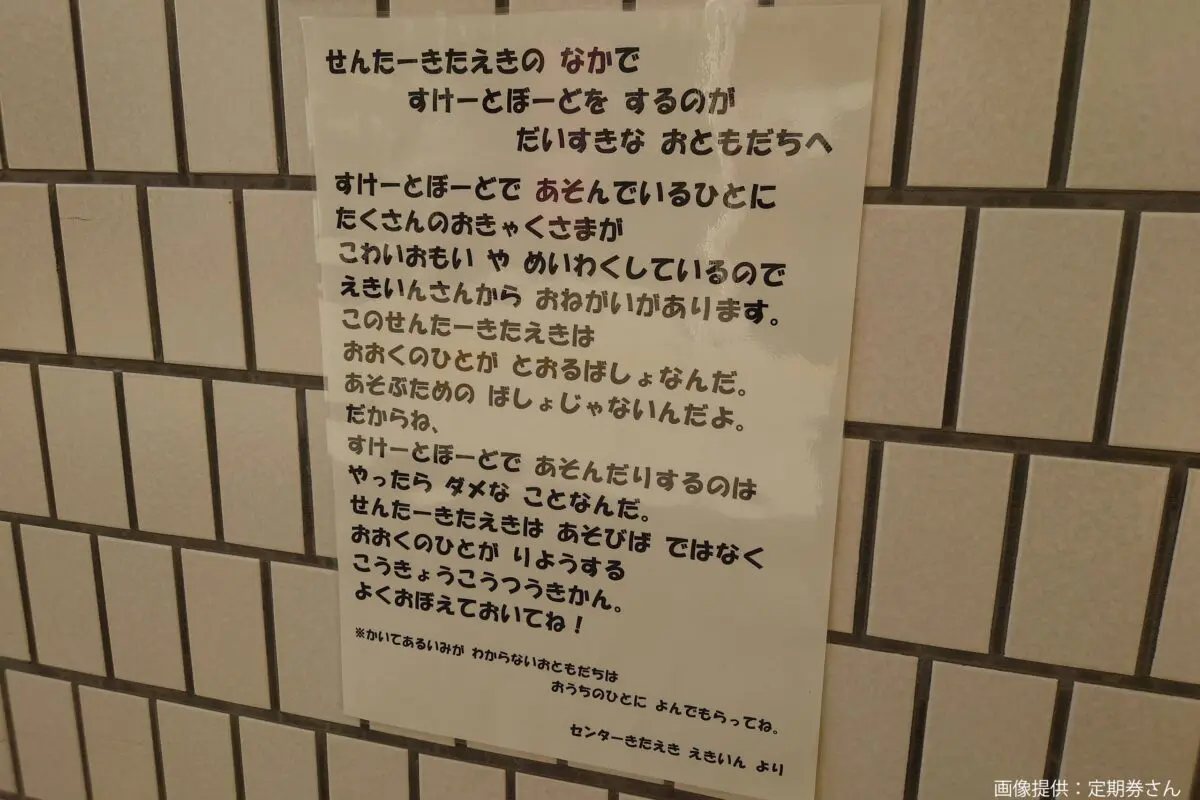 せんたーきたえきの なかで
すけーとぼーどを するのが
だいすきな おともだちへ
すけーとぼーどで あそんでいるひとに
たくさんのおきゃくさまが
こわいおもい や めいわくしているので
えきいんさんから おねがいがあります。
このせんたーきたえきは
おおくのひとが とおるばしょなんだ。
あそぶための ばしょじゃないんだよ。
だからね、
すけーとぼーどで あそんだりするのは
やったら ダメな ことなんだ。
せんたーきたえきは あそびば ではなく
おおくのひとが りようする
こうきょうこうつうきかん。
よくおぼえておいてね!
※かいてあるいみが わからないおともだちは
おうちのひとに よんでもらってね。
センターきたえき えきいん より
画像提供:定期券さん